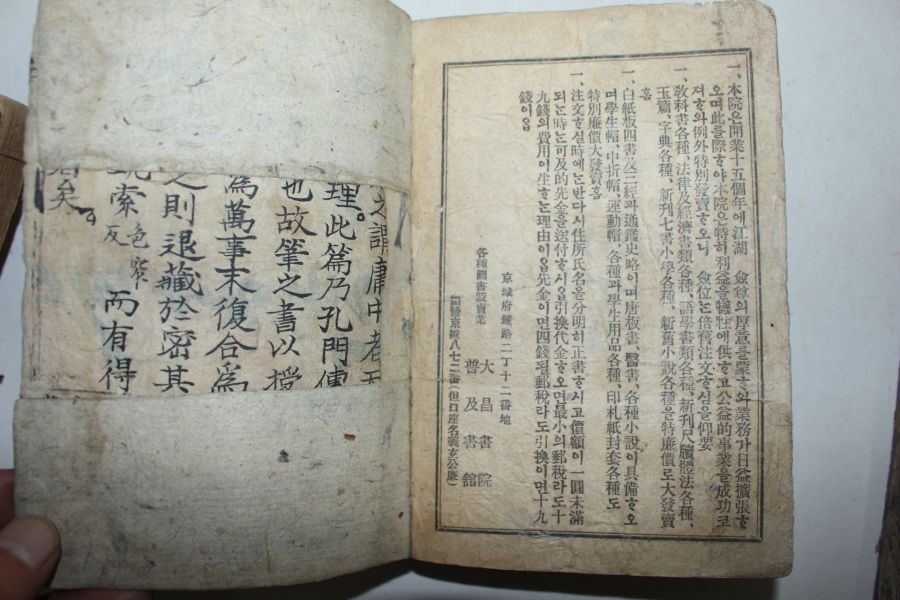 一、本院은開業十五個年에江湖 僉尊의厚意를蒙ᄒᆞ와業務가日益擴張ᄒᆞ
오며此를際ᄒᆞ야本院은特히利益을犧牲에供ᄒᆞ고公益的事業을成功코
져ᄒᆞ와例外特別發賣ᄒᆞ오니 僉位는倍舊注文ᄒᆞ심을仰要
一、敎科書各種、法律及經濟書類各種、語學書類各種、新刊尺牘體法各種、
玉篇、字典各種、新刊七書小學各種、新舊小說各種을特廉價로大發賣
홈
一、白紙板四書及三經과通鑑史略이며唐板書、醫書、各種小說이具備ᄒᆞ오
며學生帽、中折帽、運動帽、各種과學生用品各種、印札紙封套各種도
特別廉價大發賣홈
一、注文ᄒᆞ실時에는반다시住所氏名을分明히正書ᄒᆞ시고價額이一圓未滿
되는時는可及的先金을送付ᄒᆞ시옵引換代金ᄒᆞ오면最小의郵稅라도十
九錢의費用이生ᄒᆞ는理由이옵先金이면四錢될郵稅라도引換이면十九
錢이옵
京城府鍾路二丁十二番地
各種圖書販賣業
大昌書院
普及書館
振替京城八七二番(但口座名義玄公廉)
之謂庸中者
理。此篇乃孔門傳
也故筆之書以授
爲萬事末復合爲
之則退藏於密其
索色窄反而有得
者矣